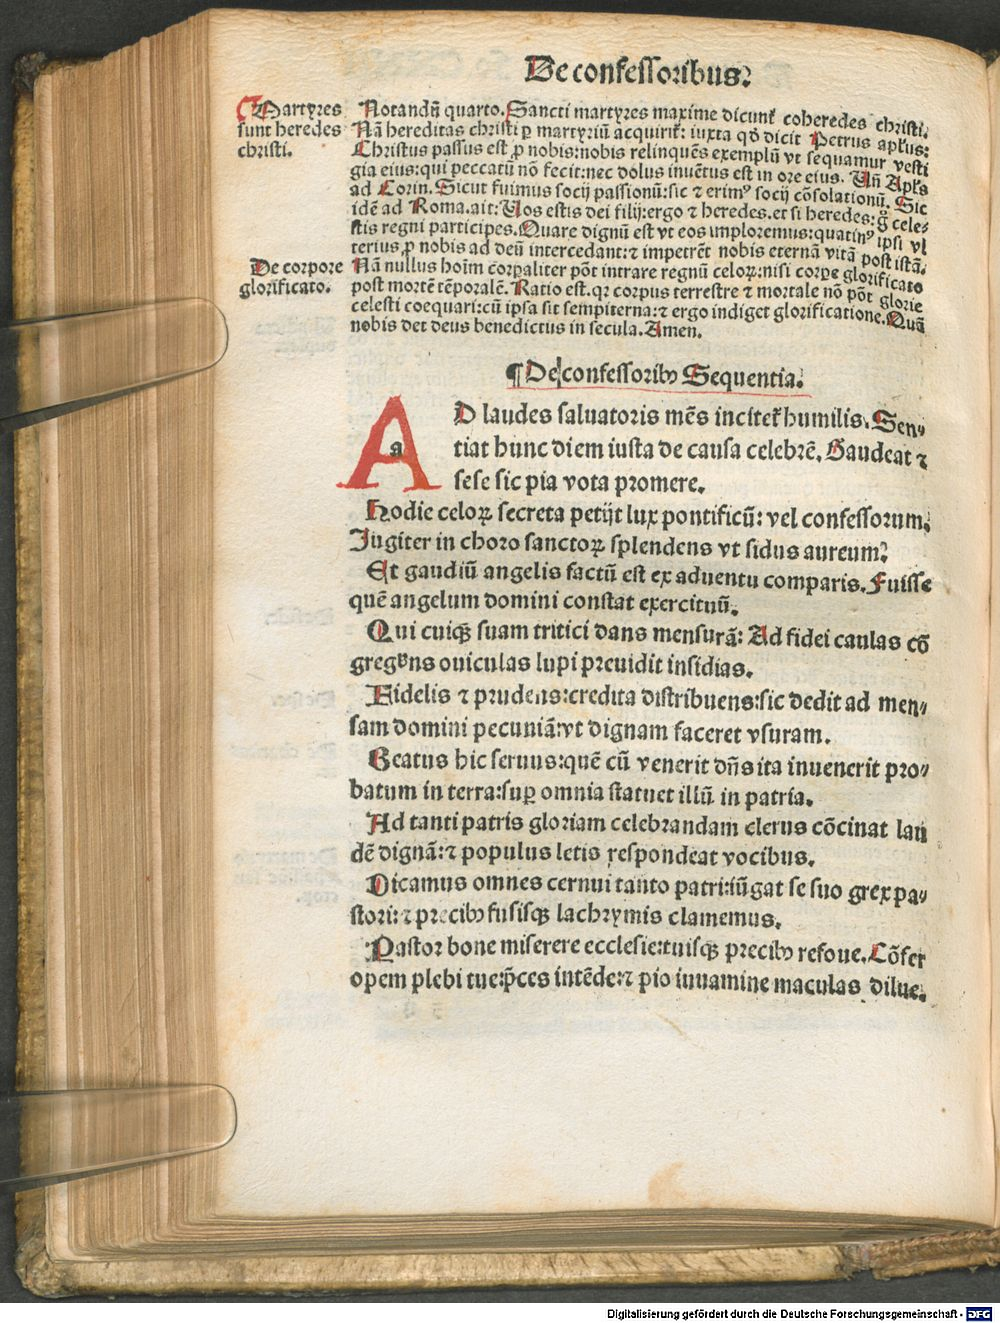 De confessoribus.
Martyres
sunt heredes
christi.
Notandū quarto. Sancti martyres maxime dicunt᷑ coheredes christi.
Nā hereditas christi ꝑ martyriū acquirit᷑: iuxta qd̄ dicit Petrus apl̄us:
Christus passus est ꝓ nobis: nobis relinquēs exemplū vt sequamur vesti
gia eius: qui peccatū nō fecit: nec dolus inuētus est in ore eius. Vn̄ Apl̄s
ad Corin. Sicut fuimus socij passionū: sic ⁊ erimꝰ socij cōsolationū. Sic
idē ad Roma. ait: Vos estis dei filij: ergo ⁊ heredes. et si heredes: g̊ cele⸗
stis regni participes. Quare dignū est vt eos imploremus: quatinꝰ ipsi vl
terius ꝓ nobis ad deū intercedant: ⁊ impetrēt nobis eternā vitā post istā.
De corpore
glorificato.
Nā nullus hoīm corꝑaliter pōt intrare regnū celoꝝ: nisi corpe glorificato
post mortē tēporalē. Ratio est. qꝛ corpus terrestre ⁊ mortale nō pōt glorie
celesti coequari: cū ipsa sit sempiterna: ⁊ ergo indiget glorificatione. Quā
nobis det deus benedictus in secula. Amen.
¶ De confessoribꝰ Sequentia.
A a D laudes saluatoris mēs incitet᷑ humilis. Sen⸗
tiat hunc diem iusta de causa celebrē. Gaudeat ⁊
sese sic pia vota promere.
Hodie celoꝝ secreta petijt lux pontificū: vel confessorum.
Iugiter in choro sanctoꝝ splendens vt sidus aureum.
Et gaudiū angelis factū est ex aduentu comparis. Fuisse
quē angelum domini constat exercituū.
Qui cuiqꝫ suam tritici dans mensurā: Ad fidei caulas cō
gregās ouiculas lupi preuidit insidias.
Fidelis ⁊ prudens: credita distribuens: sic dedit ad men⸗
sam domini pecuniā: vt dignam faceret vsuram.
Beatus hic seruus: quē cū venerit dn̄s ita inuenerit pro⸗
batum in terra: suꝑ omnia statuet illū in patria.
Ad tanti patris gloriam celebrandam clerus cōcinat lau
dē dignā: ⁊ populus letis respondeat vocibus.
Dicamus omnes cernui tanto patri: iūgat se suo grex pa⸗
stori: ⁊ precibꝰ fusisqꝫ lachrymis clamemus.
Pastor bone miserere ecclesie: tuisqꝫ precibꝰ refoue. Cōfer
opem plebi tue: p̄ces intēde: ⁊ pio iuuamine maculas dilue.
Digitalisierung gefördert durch die Deutsche Forschungsgemeinschaft - DFG